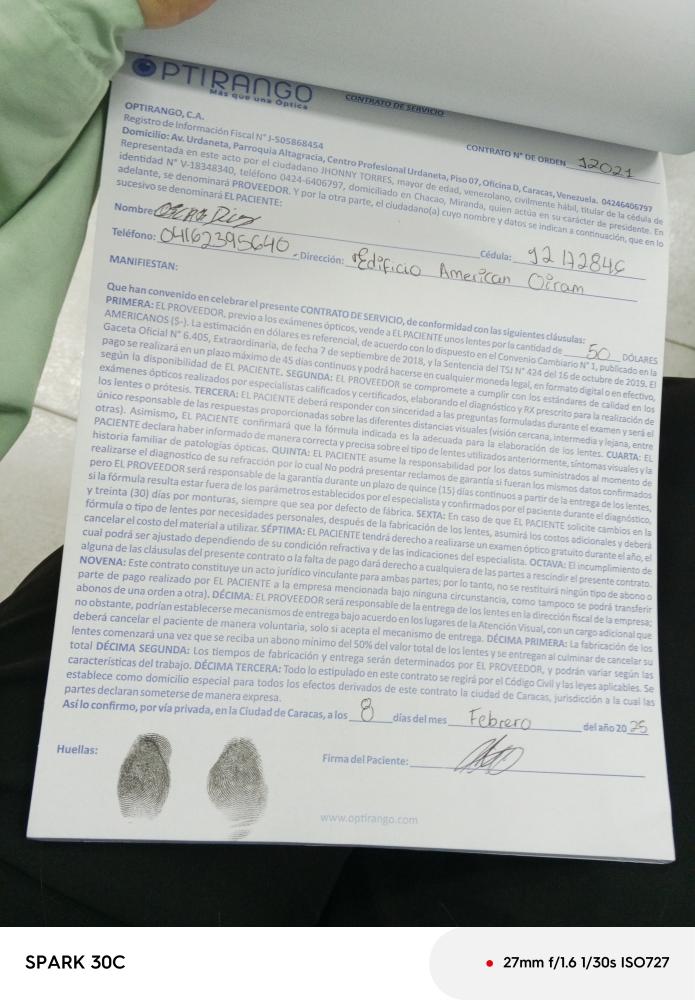 OPTIRANGO
Más que una Óptica
CONTRATO DE SERVICIO
OPTIRANGO, C.A.
CONTRATO N° DE ORDEN 12021
Registro de Información Fiscal N° J-505868454
Domicilio: Av. Urdaneta, Parroquia Altagracia, Centro Profesional Urdaneta, Piso 07, Oficina D, Caracas, Venezuela. 04246406797
Representada en este acto por el ciudadano JHONNY TORRES, mayor de edad, venezolano, civilmente hábil, titular de la cédula de
identidad N° V-18348340, teléfono 0424-6406797, domiciliado en Chacao, Miranda, quien actúa en su carácter de presidente. En
adelante, se denominará PROVEEDOR. Y por la otra parte, el ciudadano(a) cuyo nombre y datos se indican a continuación, que en lo
sucesivo se denominará EL PACIENTE:
Nombre
Cédula:
Teléfono: 04162395640. Dirección: Edificio American Oiram
MANIFIESTAN:
Que han convenido en celebrar el presente CONTRATO DE SERVICIO, de conformidad con las siguientes cláusulas:
PRIMERA: EL PROVEEDOR, previo a los exámenes ópticos, vende a EL PACIENTE unos lentes por la cantidad de 50 DÓLARES
AMERICANOS ($-). La estimación en dólares es referencial, de acuerdo con lo dispuesto en el Convenio Cambiario N° 1, publicado en la
Gaceta Oficial N° 6.405, Extraordinaria, de fecha 7 de septiembre de 2018, y la Sentencia del TSJ N° 424 del 16 de octubre de 2019. El
pago se realizará en un plazo máximo de 45 días continuos y podrá hacerse en cualquier moneda legal, en formato digital o en efectivo,
según la disponibilidad de EL PACIENTE. SEGUNDA: EL PROVEEDOR se compromete a cumplir con los estándares de calidad en los
exámenes ópticos realizados por especialistas calificados y certificados, elaborando el diagnóstico y RX prescrito para la realización de
los lentes o prótesis. TERCERA: EL PACIENTE deberá responder con sinceridad a las preguntas formuladas durante el examen y será el
único responsable de las respuestas proporcionadas sobre las diferentes distancias visuales (visión cercana, intermedia y lejana, entre
otras). Asimismo, EL PACIENTE confirmará que la fórmula indicada es la adecuada para la elaboración de los lentes. CUARTA: EL
PACIENTE declara haber informado de manera correcta y precisa sobre el tipo de lentes utilizados anteriormente, síntomas visuales y la
historia familiar de patologías ópticas. QUINTA: EL PACIENTE asume la responsabilidad por los datos suministrados al momento de
realizarse el diagnostico de su refracción por lo cual No podrá presentar reclamos de garantía si fueran los mismos datos confirmados
pero EL PROVEEDOR será responsable de la garantía durante un plazo de quince (15) días continuos a partir de la entrega de los lentes,
si la fórmula resulta estar fuera de los parámetros establecidos por el especialista y confirmados por el paciente durante el diagnóstico,
y treinta (30) días por monturas, siempre que sea por defecto de fábrica. SEXTA: En caso de que EL PACIENTE solicite cambios en la
fórmula o tipo de lentes por necesidades personales, después de la fabricación de los lentes, asumirá los costos adicionales y deberá
cancelar el costo del material a utilizar. SÉPTIMA: EL PACIENTE tendrá derecho a realizarse un examen óptico gratuito durante el año, el
cual podrá ser ajustado dependiendo de su condición refractiva y de las indicaciones del especialista. OCTAVA: El incumplimiento de
alguna de las cláusulas del presente contrato o la falta de pago dará derecho a cualquiera de las partes a rescindir el presente contrato.
NOVENA: Este contrato constituye un acto jurídico vinculante para ambas partes; por lo tanto, no se restituirá ningún tipo de abono o
parte de pago realizado por EL PACIENTE a la empresa mencionada bajo ninguna circunstancia, como tampoco se podrá transferir
abonos de una orden a otra). DÉCIMA: EL PROVEEDOR será responsable de la entrega de los lentes en la dirección fiscal de la empresa;
no obstante, podrían establecerse mecanismos de entrega bajo acuerdo en los lugares de la Atención Visual, con un cargo adicional que
deberá cancelar el paciente de manera voluntaria, solo si acepta el mecanismo de entrega. DÉCIMA PRIMERA: La fabricación de los
lentes comenzará una vez que se reciba un abono mínimo del 50% del valor total de los lentes y se entregan al culminar de cancelar su
total DÉCIMA SEGUNDA: Los tiempos de fabricación y entrega serán determinados por EL PROVEEDOR, y podrán variar según las
características del trabajo. DÉCIMA TERCERA: Todo lo estipulado en este contrato se regirá por el Código Civil y las leyes aplicables. Se
establece como domicilio especial para todos los efectos derivados de este contrato la ciudad de Caracas, jurisdicción a la cual las
partes declaran someterse de manera expresa.
Así lo confirmo, por vía privada, en la Ciudad de Caracas, a los 8 días del mes Febrero del año 20 25
Huellas:
Firma del Paciente:
www.optirango.com
SPARK 30C
27mm f/1.6 1/30s ISO727